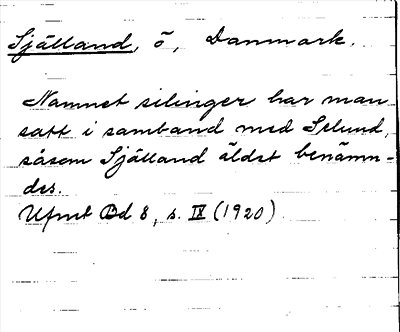 Sjålland, ö, Danmark.
Namnet silinger har man
satt i samband med Selund,
såsom Sjålland äldst benämn-
des.
Ufmt Od 8, s. IX (1920)